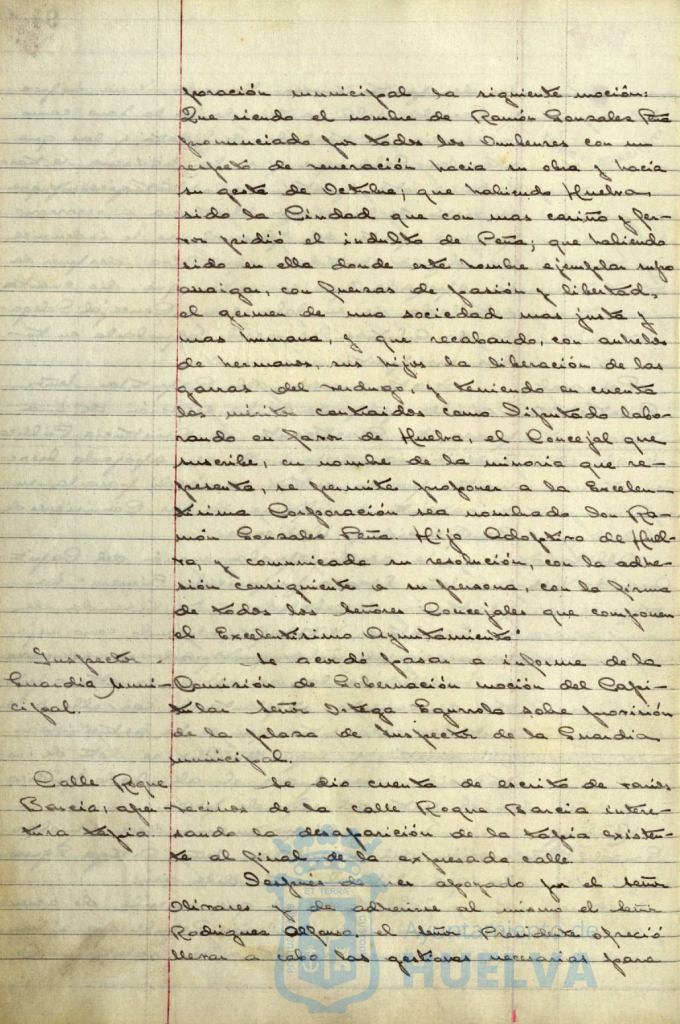 poración municipal la siguiente moción:
Que siendo el nombre de Ramón Gonzales Peña
pronunciado por todos los Onubenses con un
respeto de veneración hacia su obra y hacia
su gesta de Octubre; que habiendo Huelva
sido la Ciudad que con mas cariño y fer-
vor pidió el indulto de Peña; que habiendo
sido en ella donde este hombre ejemplar supo
arraigar, con fuerzas de pasión y libertad,
el germen de una sociedad mas justa y
mas humana, y que recabando, con anhelos
de hermanos, sus hijos la liberación de las
garras del verdugo, y teniendo en cuenta
los méritos contraidos como Diputado labo-
rando en favor de Huelva, el Concejal que
suscribe, en nombre de la minoria que re-
presenta, se permite proponer a la Excelen-
tísima Corporación sea nombrado don Ra-
món Gonzales Peña. Hijo Adoptivo de Huel-
va, y comunicada su resolución, con la adhe-
sión consiguiente a su persona, con la firma
de todos los Señores Concejales que componen
el Excelentísimo Ayuntamiento"
Inspector
Guardia Muni-
cipal.
Se acordó pasar a informe de la
Comisión de Gobernación moción del Capi-
tular Señor Ortega sobre provisión
de la plaza de Inspector de la Guardia
municipal.
Calle Roque
Barcia; aper-
tura tapia.
Se dio cuenta de escrito de varios
vecinos de la calle Roque Barcia intere-
sando la desaparición de la tapia existen-
te al final de la expresada calle
Después de ser apoyado por el Señor
Olivares y de adherirse al mismo el Señor
Rodriguez Alfonso, el Señor Presidente ofreció
llevar a cabo las gestiones necesarias para
Ayuntamiento de
HUELVA